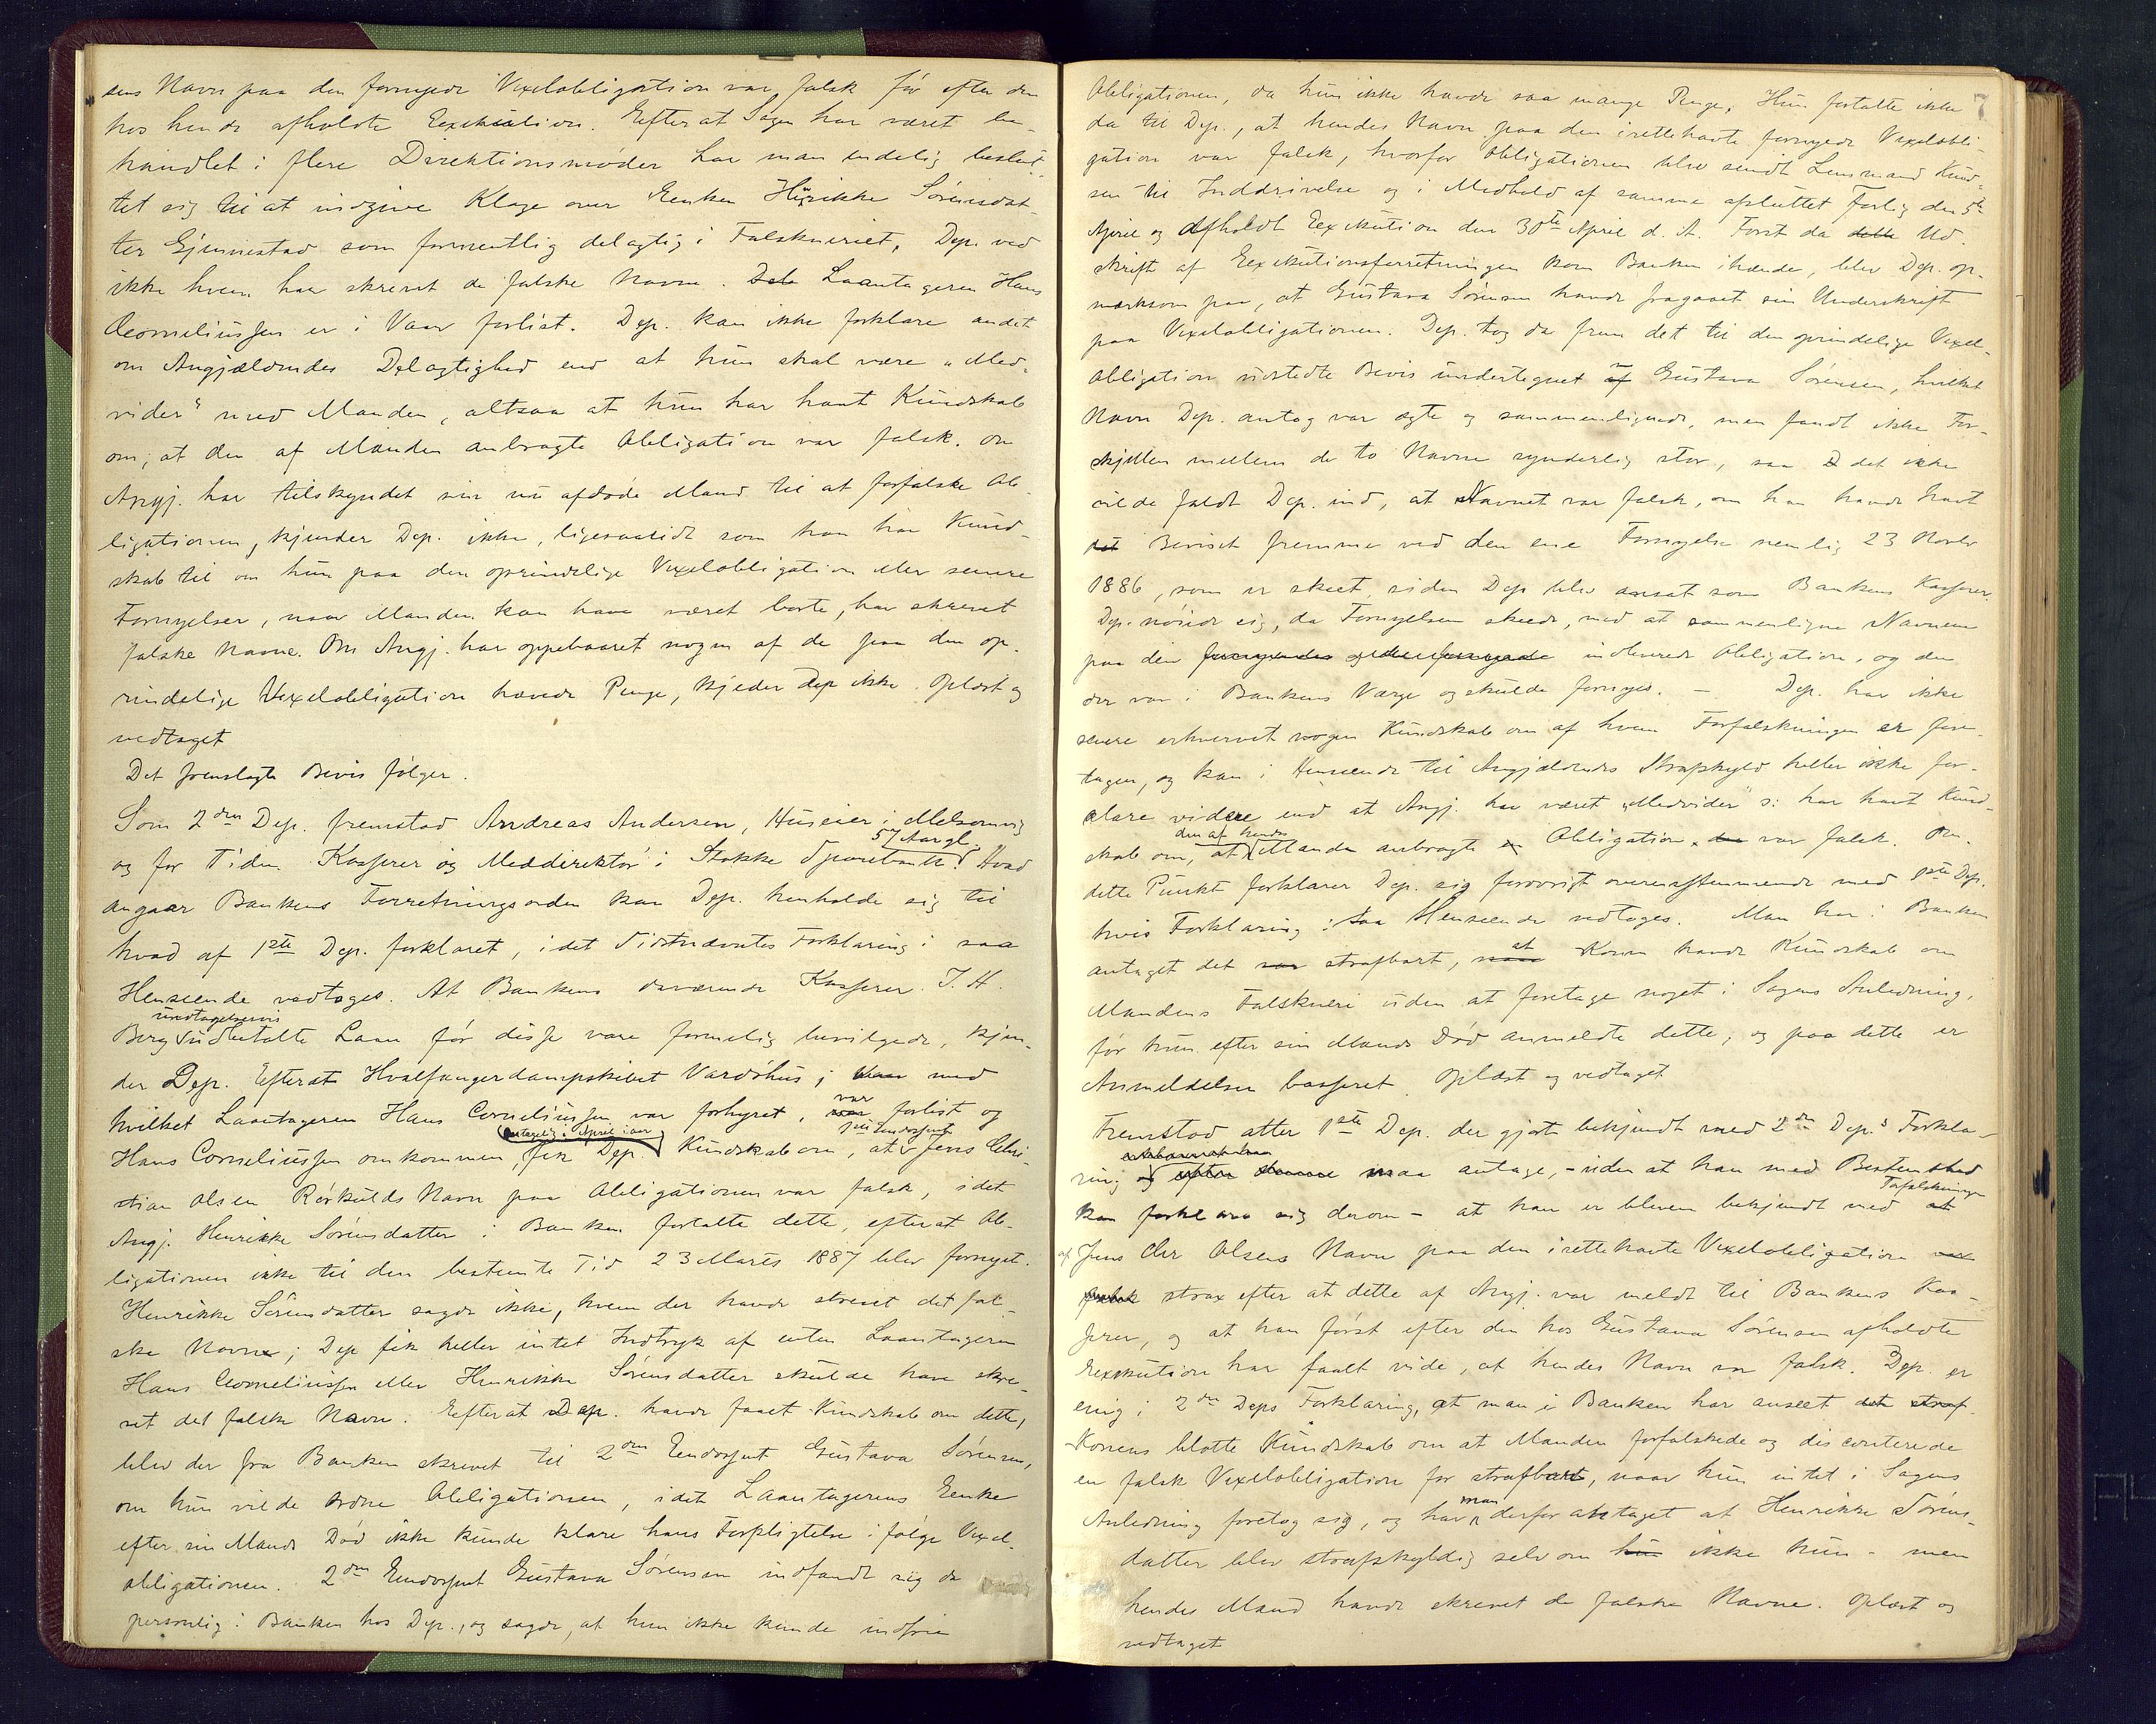 sens Navn paa den fornyede Vexelobligation var falsk før efter den
hos hende afholdte Exekution. Efterat Sagen har været be-
handlet i flere Direktionsmøder har man endelig beslut-
tet sig til at indgive Klage over Enken Henrikke Sørensdat-
ter Gjennestad som formentlig delagtig i Falskneriet, Dep. ved
ikke hvem har skrevet de falske Navne. Laantageren Hans
Corneliussen er i Vaar forlist. Dep. kan ikke forklare andet
om Angjældendes Delagtighed end at hun skal være "Med-
vider" med Manden, altsaa at hun har havt Kundskab
om, at den af Manden anbragte Obligation var falsk. Om
Angj. har tilskyndet sin nu afdøde Mand til at forfalske Ob-
ligationen, kjender Dep. ikke, ligesaalidt som han har Kund-
skab til om hun paa den oprindelige Vexelobligation eller senere
Fornyelser, naar Manden kan have været borte, har skrevet
falske Navne. Om Angj. har oppebaaret nogen af de paa den op-
rindelige Vexelobligation hævede Penge, kjeder Dep ikke. Oplæst og
vedtaget
Det fremlagte Bevis følger.
Som 2den Dep. fremstod Andreas Andersen, Huseier i Melsomvig
57 Aar gl.
og for Tiden Kasserer og Meddirektør i Stokke Sparebank. Hvad
angaar Bankens Forretningsorden kan Dep. henholde sig til
hvad af 1ste Dep. forklaret, idet Sidstnævntes Forklaring i saa
Henseende vedtages. At Bankens daværende Kasserer J. H.
undtagelsesvis
Berg udbetalte Laan før disse vare formelig bevilgede, kjen-
der Dep. Efterat Hvalfangerdampskibet Vardøhus, med
hvilket Laantageren Hans Corneliussen var forhyret, var forlist og
(antagelig i April i aar) 1ste Endossent
Hans Corneliussen omkommen, fik Dep. Kundskab om, at Jens Chri-
stian Olsen Rørkulds Navn paa Obligationen var falsk, idet
Angj. Henrikke Sørensdatter i Banken fortalte dette, efterat Ob-
ligationen ikke til den bestemte Tid 23 Marts 1887 blev fornyet.
Henrikke Sørensdatter sagde ikke, hvem der havde skrevet det fal-
ske Navn; Dep fik heller intet Indtryk af enten Laantageren
Hans Corneliussen eller Henrikke Sørensdatter skulde have skre-
vet det falske Navn. Efterat Dep. havde faaet Kundskab om dette,
blev der fra Banken skrevet til 2den Endossent Gustava Sørensen,
om hun vilde ordne Obligationen, idet Laantagerens Enke
efter sin Mands Død ikke kunde klare hans Forpligtelse i følge Vexel-
obligationen. 2den Endossent Gustava Sørensen indfandt sig da
personlig i Banken hos Dep., og sagde, at hun ikke kunde indfrie
7
Obligationen, da hun ikke havde saa mange Penge, Hun fortalte ikke
da til Dep., at hendes Navn paa den irettehavte fornyede Vexelobli-
gation var falsk, hvorfor Obligationen blev sendt Lensmand Knud-
sen til Inddrivelse og i Medhold af samme afsluttet Forlig den 5te
April og afholdt Exekution den 30te April d. A. Først da Ud-
skrift af Exekutionsforretningen kom Banken ihænde, blev Dep. op-
mærksom paa, at Gustava Sørensen havde fragaaet sin Underskrift
paa Vexelobligationen. Dep. tog da frem det til den oprindelige Vexel-
obligation udstedte Bevis undertegnet Gustava Sørensen, hvilket
Navn Dep. antog var ægte og sammenlignede, men fandt ikke For-
skjellen mellem de to Navne synderlig stor, saa det ikke
vilde faldt Dep. ind, at Navnet var falsk, om han havde havt
Beviset fremme ved den ene Fornyelse nemlig 23 Novbr
1886, som er skeet, siden Dep blev ansat som Bankens Kasserer.
Dep. nøiede sig, da Fornyelsen skede, med at sammenligne Navnene
paa den indleverede Obligation, og den
der var i Bankens Værge og skulde fornyes. — Dep. har ikke
senere erhvervet nogen Kundskab om af hvem Forfalskningen er fore-
tagen, og kan i Henseende til Angjældendes Strafskyld heller ikke for-
klare videre end at Angj. har været "Medvider" ɔ: har havt Kund-
den af hendes
skab om, at Manden anbragte Obligation var falsk. Om
dette Punkt forklarer Dep. sig forøvrigt overensstemmende med 1ste Dep.
hvis Forklaring i saa Henseende vedtages. Man har i Banken
at
antaget det strafbart, Konen havde Kundskab om
Mandens Falskneri uden at foretage noget i Sagens Anledning,
før hun efter sin Mands Død anmeldte dette; og paa dette er
Anmeldelsen basseret. Oplæst og vedtaget
Fremstod atter 1ste Dep. der gjort bekjendt med 2den Dep.s Forkla-
ring maa antage, - uden at han med Bestemthed
Forfalskningen
kan forklare sig derom - at han er bleven bekjendt med
af Jens Chr Olsens Navn paa den irettehavte Vexelobligation
strax efter at dette af Angj. var meldt til Bankens Kas-
serer, og at han først efter den hos Gustava Sørensen afholdte
Exekution har faaet vide, at hendes Navn var falsk. Dep. er
enig i 2den Deps Forklaring, at man i Banken har anseet
Konens blotte Kundskab om at Manden forfalskede og disconterede
en falsk Vexelobligation for strafbart, naar hun intet i Sagens
man
Anledning foretog sig, og har derfor antaget at Henrikke Sørens-
datter blev strafskyldig selv om ikke hun - men
hendes Mand havde skrevet de falske Navne. Oplæst og
vedtaget